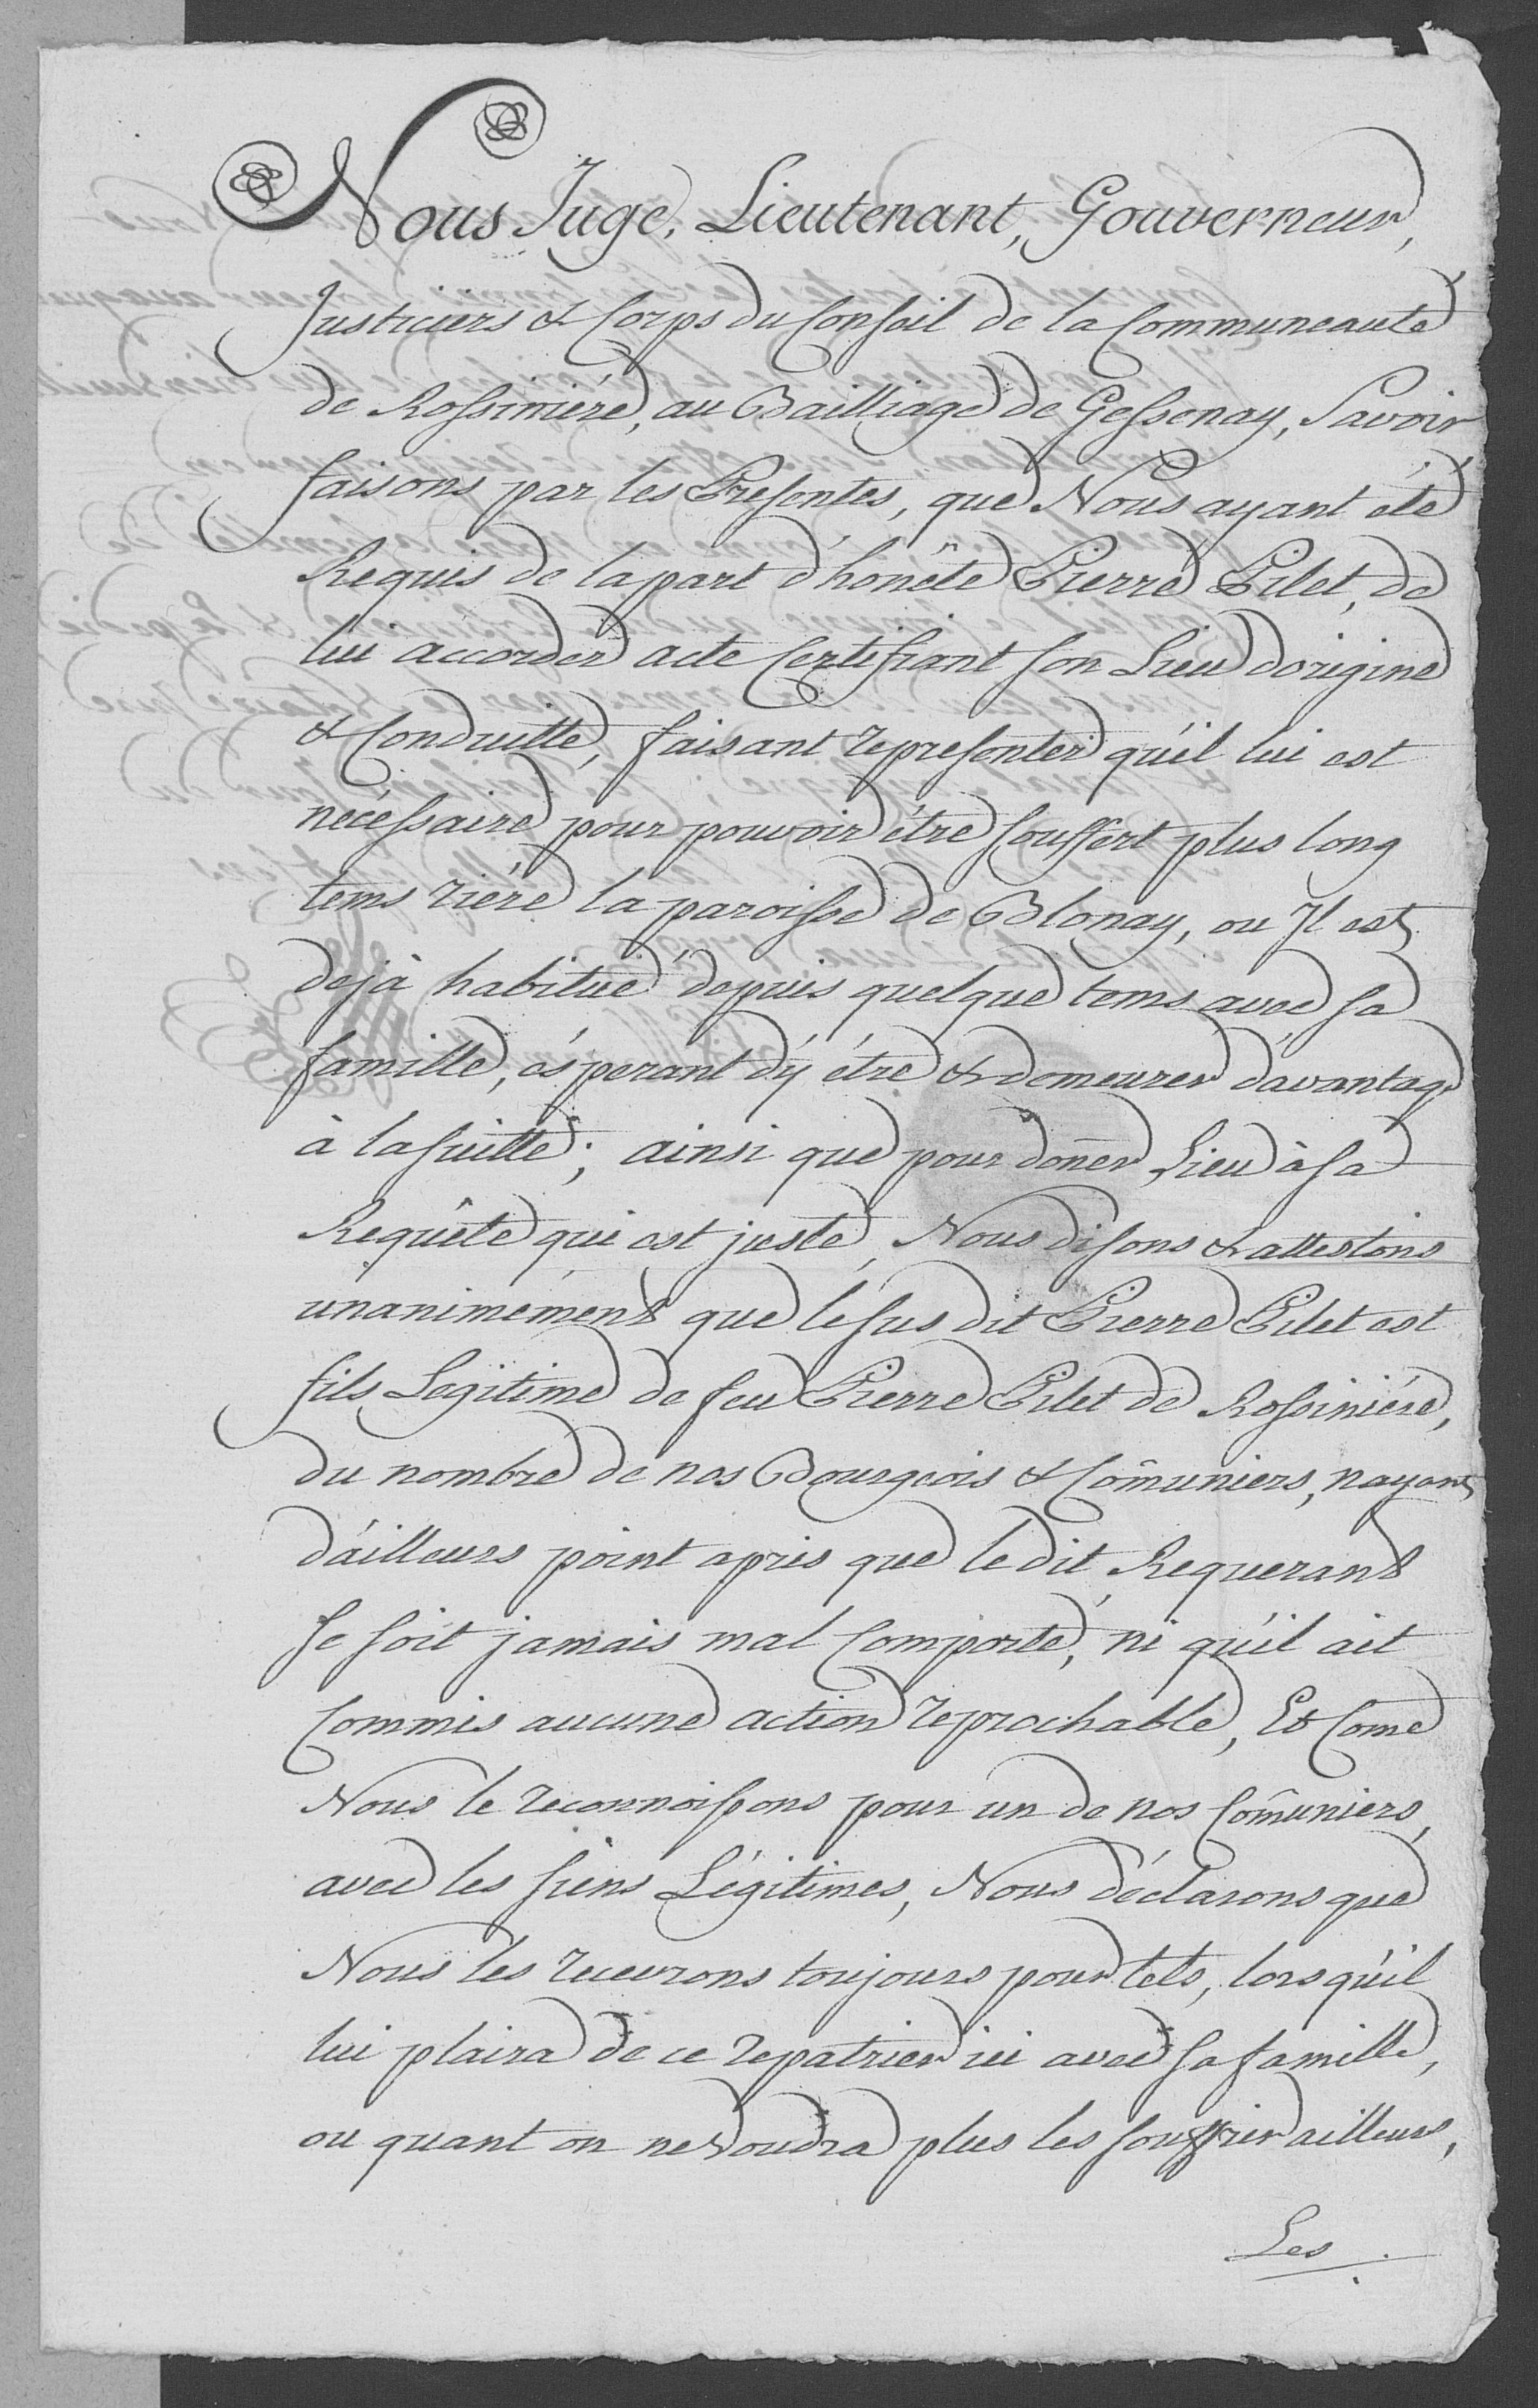 Nous Juge, Lieutenant, Gouverneur,
Justiciers & Corps du Conseil de la Communeauté
de Rossiniére, au Bailliage de Gessenay, Savoir
faisons par les Presentes, que Nous ayant été
Requis de la part d'honête Pierre Pilet, de
lui accorder acte Certifiant son Lieu d'origine
& Conduitte, faisant representer qu'il lui est
nécéssaire pour pouvoir étre souffert plus long
tems riére la paroisse de Blonay, ou Il est
dejà habitué depuis quelque tems avec sa
famille, ésperant d'y étre & demeurer d'avantage
à la suitte; ainsi que pour doñer Lieu à sa
Requête qui est juste, Nous disons & attestons
unanimément que le sus dit Pierre Pilet est
fils Legitime de feu Pierre Pilet de Rossiniére,
du nombre de nos Bourgeois & Com̃uniers, nayant
d'ailleurs point apris que le dit Requerant
se soit jamais mal Comporté, ni qu'il ait
Commis aucune action reprochable, Et Come
Nous le reconnoissons pour un de nos Com̃uniers,
avec les siens Légitimes, Nous déclarons que
Nous les recevrons toujours pour tels, lors qu'il
lui plaira de ce repatrier ici avec sa famille,
ou quant on ne voudra plus les souffrir ailleurs,
Les